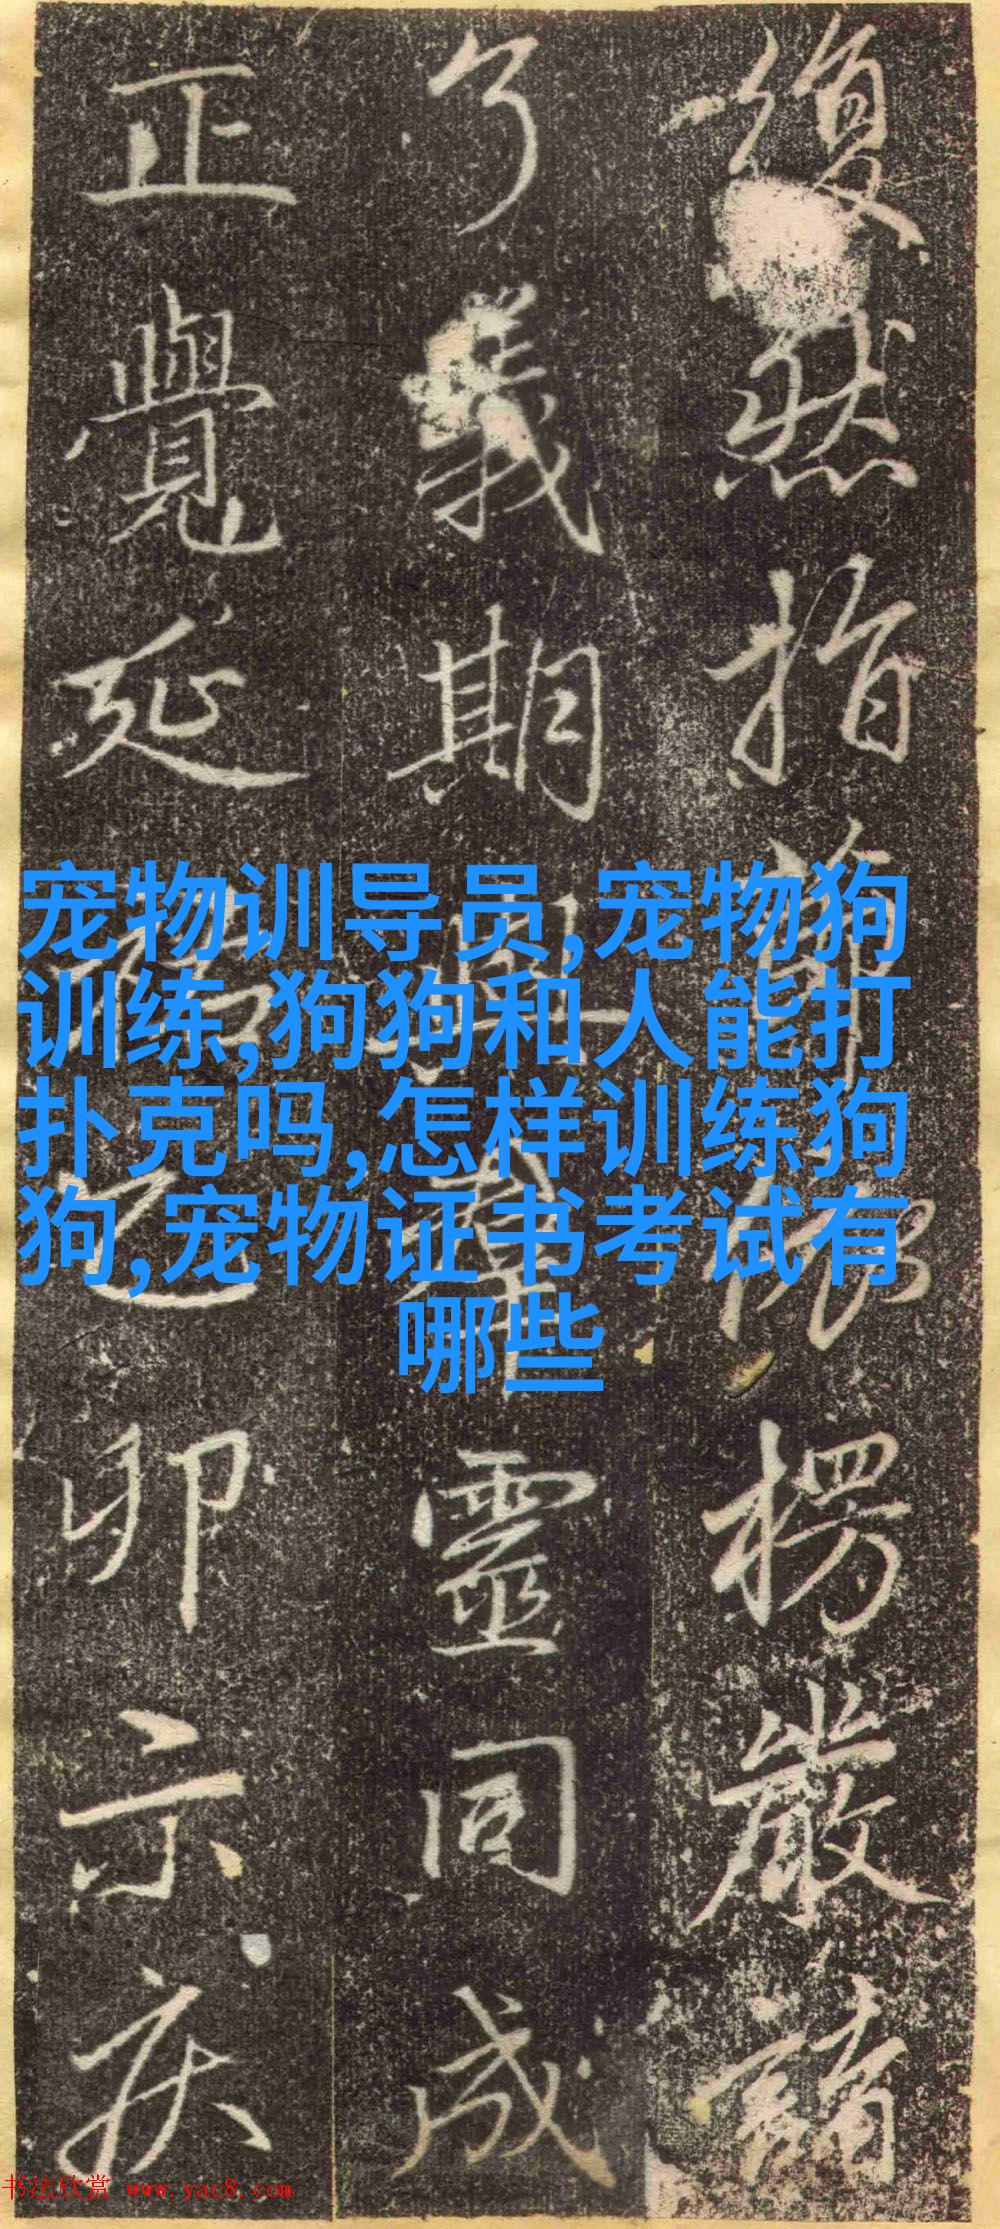 復然指節依楞嚴請
了義期與羣靈同成
正覺延祐己卯示疾
宠物训导员,宠物狗
训练,狗狗和人能打
扑克吗,怎样训练狗
狗,宠物证书考试有
哪些
书法欣赏 www.yac8.com